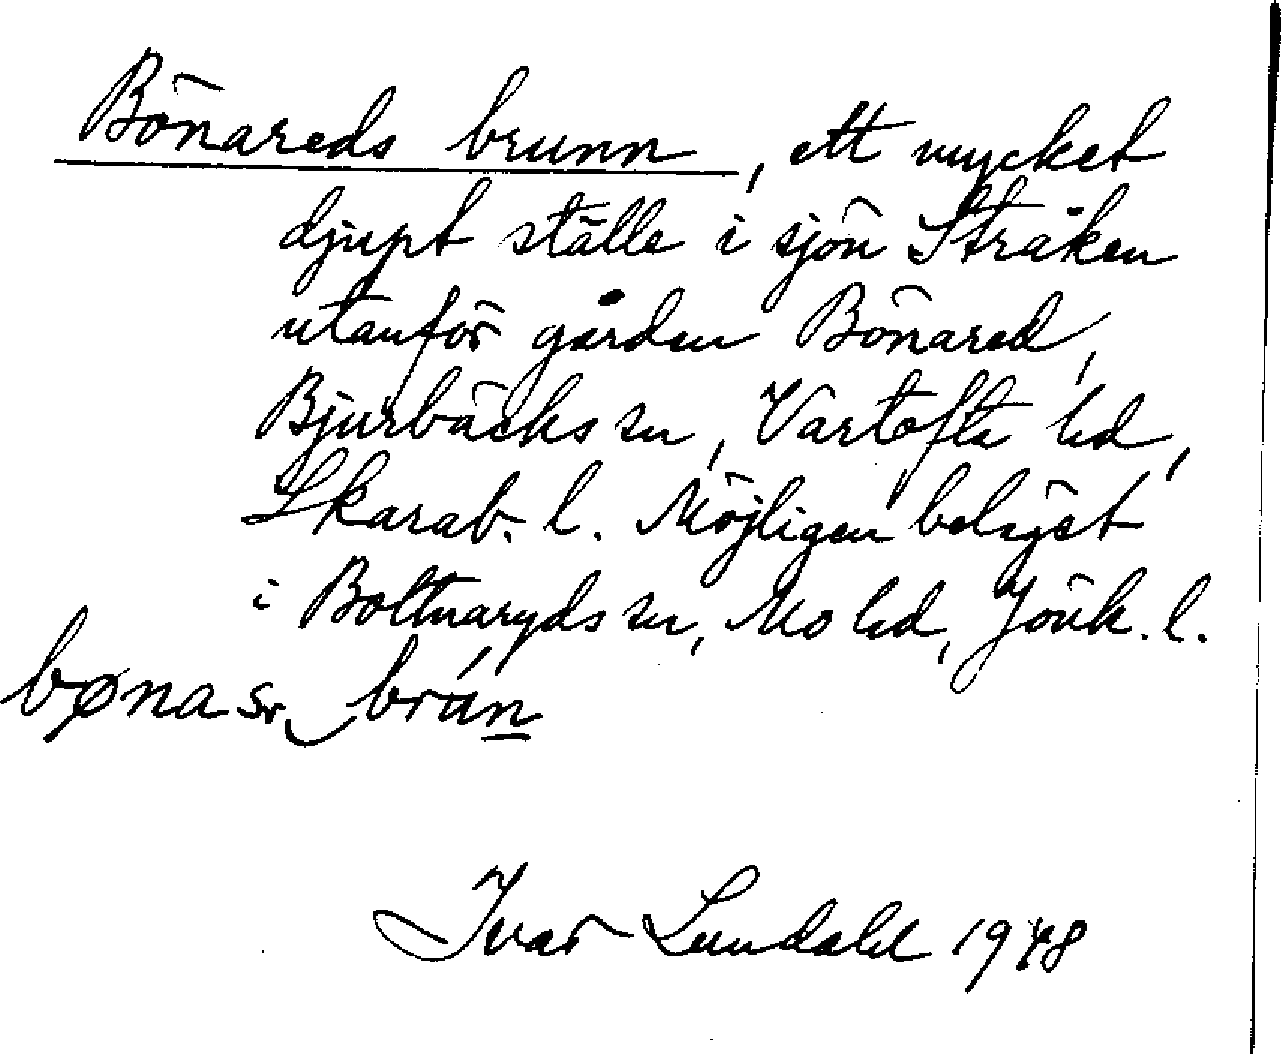 Bönareds brunn, ett mycket
djupt ställe i sjön Stråken
utanför gården Bönared,
Bjurbäcks sn, Vartofta hd,
Skarab. l. Möjligen beläget
i Bottnaryds sn, Mo hd, Jönk. l.
brún
Ivar Lundahl 1948